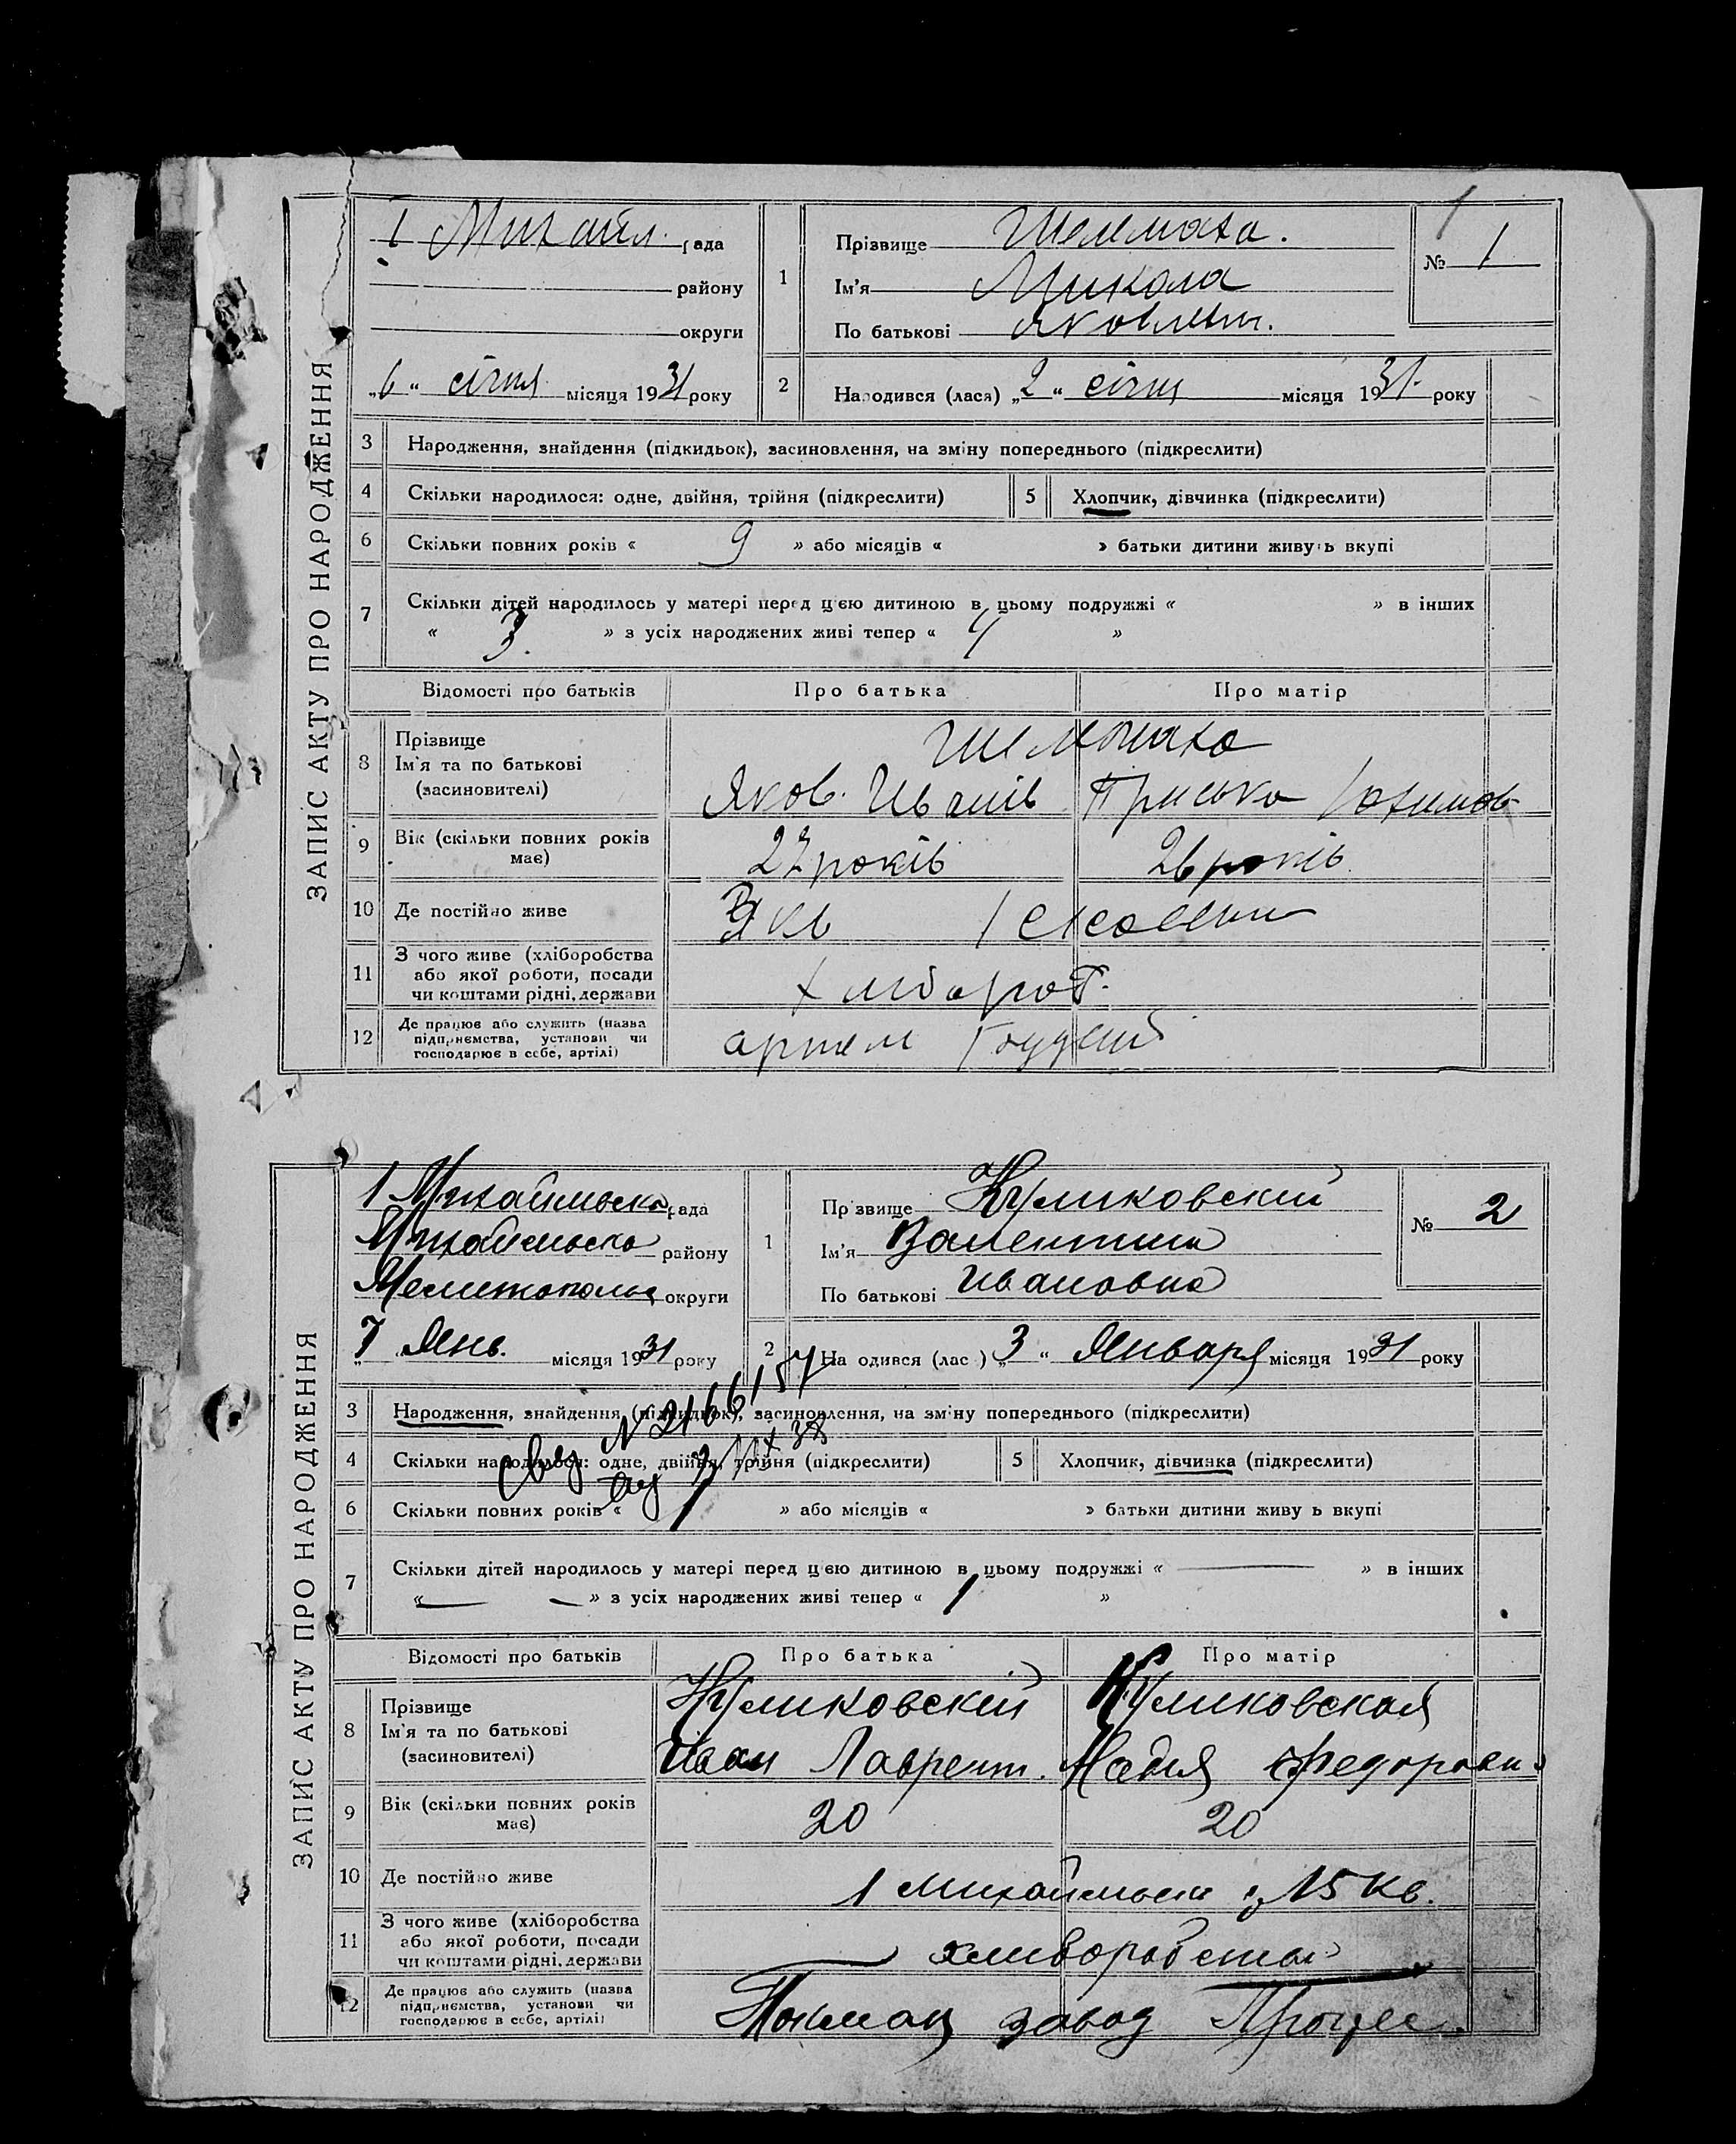 ЗАПИС АКТУ ПРО НАРОДЖЕННЯ
1
І Михайл. рада
району
округи
„6“ січня місяця 1931 року
1
Прізвище Шеммата.
Ім'я Микола
По батькові Яковлевич.
№ 1
2
Народився (лася) „2“ січня місяця 1931. року
3 Народження, знайдення (підкидьок), засиновлення, на зміну попереднього (підкреслити)
4 Скільки народилося: одне, двійня, трійня (підкреслити) 5 Хлопчик, дівчинка (підкреслити)
6 Скільки повних років « 9 » або місяців « » батьки дитини живуть вкупі
7 Скільки дітей народилось у матері перед цією дитиною в цьому подружжі « » в інших
« 3. » з усіх народжених живі тепер « 4 »
Відомості про батьків Про батька Про матір
8 Прізвище
Ім'я та по батькові
(засиновителі)
Яков. Иванів Приська Юхимов
9 Вік (скільки повних років має) 27 років 26 років
10 Де постійно живе
11 З чого живе (хліборобства
або якої роботи, посади
чи коштами рідні, держави
хлібороб.
12 Де працює або служить (назва
підприємства, установи чи
господарює в себе, артілі)
артем
ЗАПИС АКТУ ПРО НАРОДЖЕННЯ
1 Михайлівська рада
Михайлівська району
Мелитопольс округи
„7 Янв. місяця 1931 року
1
Прізвище Куликовский
Ім'я Валентина
По батькові Ивановна
№ 2
2
Народився (лася) „3“ Января місяця 1931 року
3 Народження, знайдення (підкидьок), засиновлення, на зміну попереднього (підкреслити)
Свид N 2166157
4 Скільки народилося: одне, двійня, трійня (підкреслити) 5 Хлопчик, дівчинка (підкреслити)
6 Скільки повних років « » або місяців « » батьки дитини живуть вкупі
7 Скільки дітей народилось у матері перед цією дитиною в цьому подружжі « — » в інших
« — — » з усіх народжених живі тепер « 1 »
Відомості про батьків Про батька Про матір
8 Прізвище
Ім'я та по батькові
(засиновителі)
Куликовскій Куликовская
Іван Лаврент. Надія Федоровн
9 Вік (скільки повних років має) 20 20
10 Де постійно живе 1 Михайлівка 15 кв.
11 З чого живе (хліборобства
або якої роботи, посади
чи коштами рідні, держави
хлиборобство
12 Де працює або служить (назва
підприємства, установи чи
господарює в себе, артілі)
Токмац завод